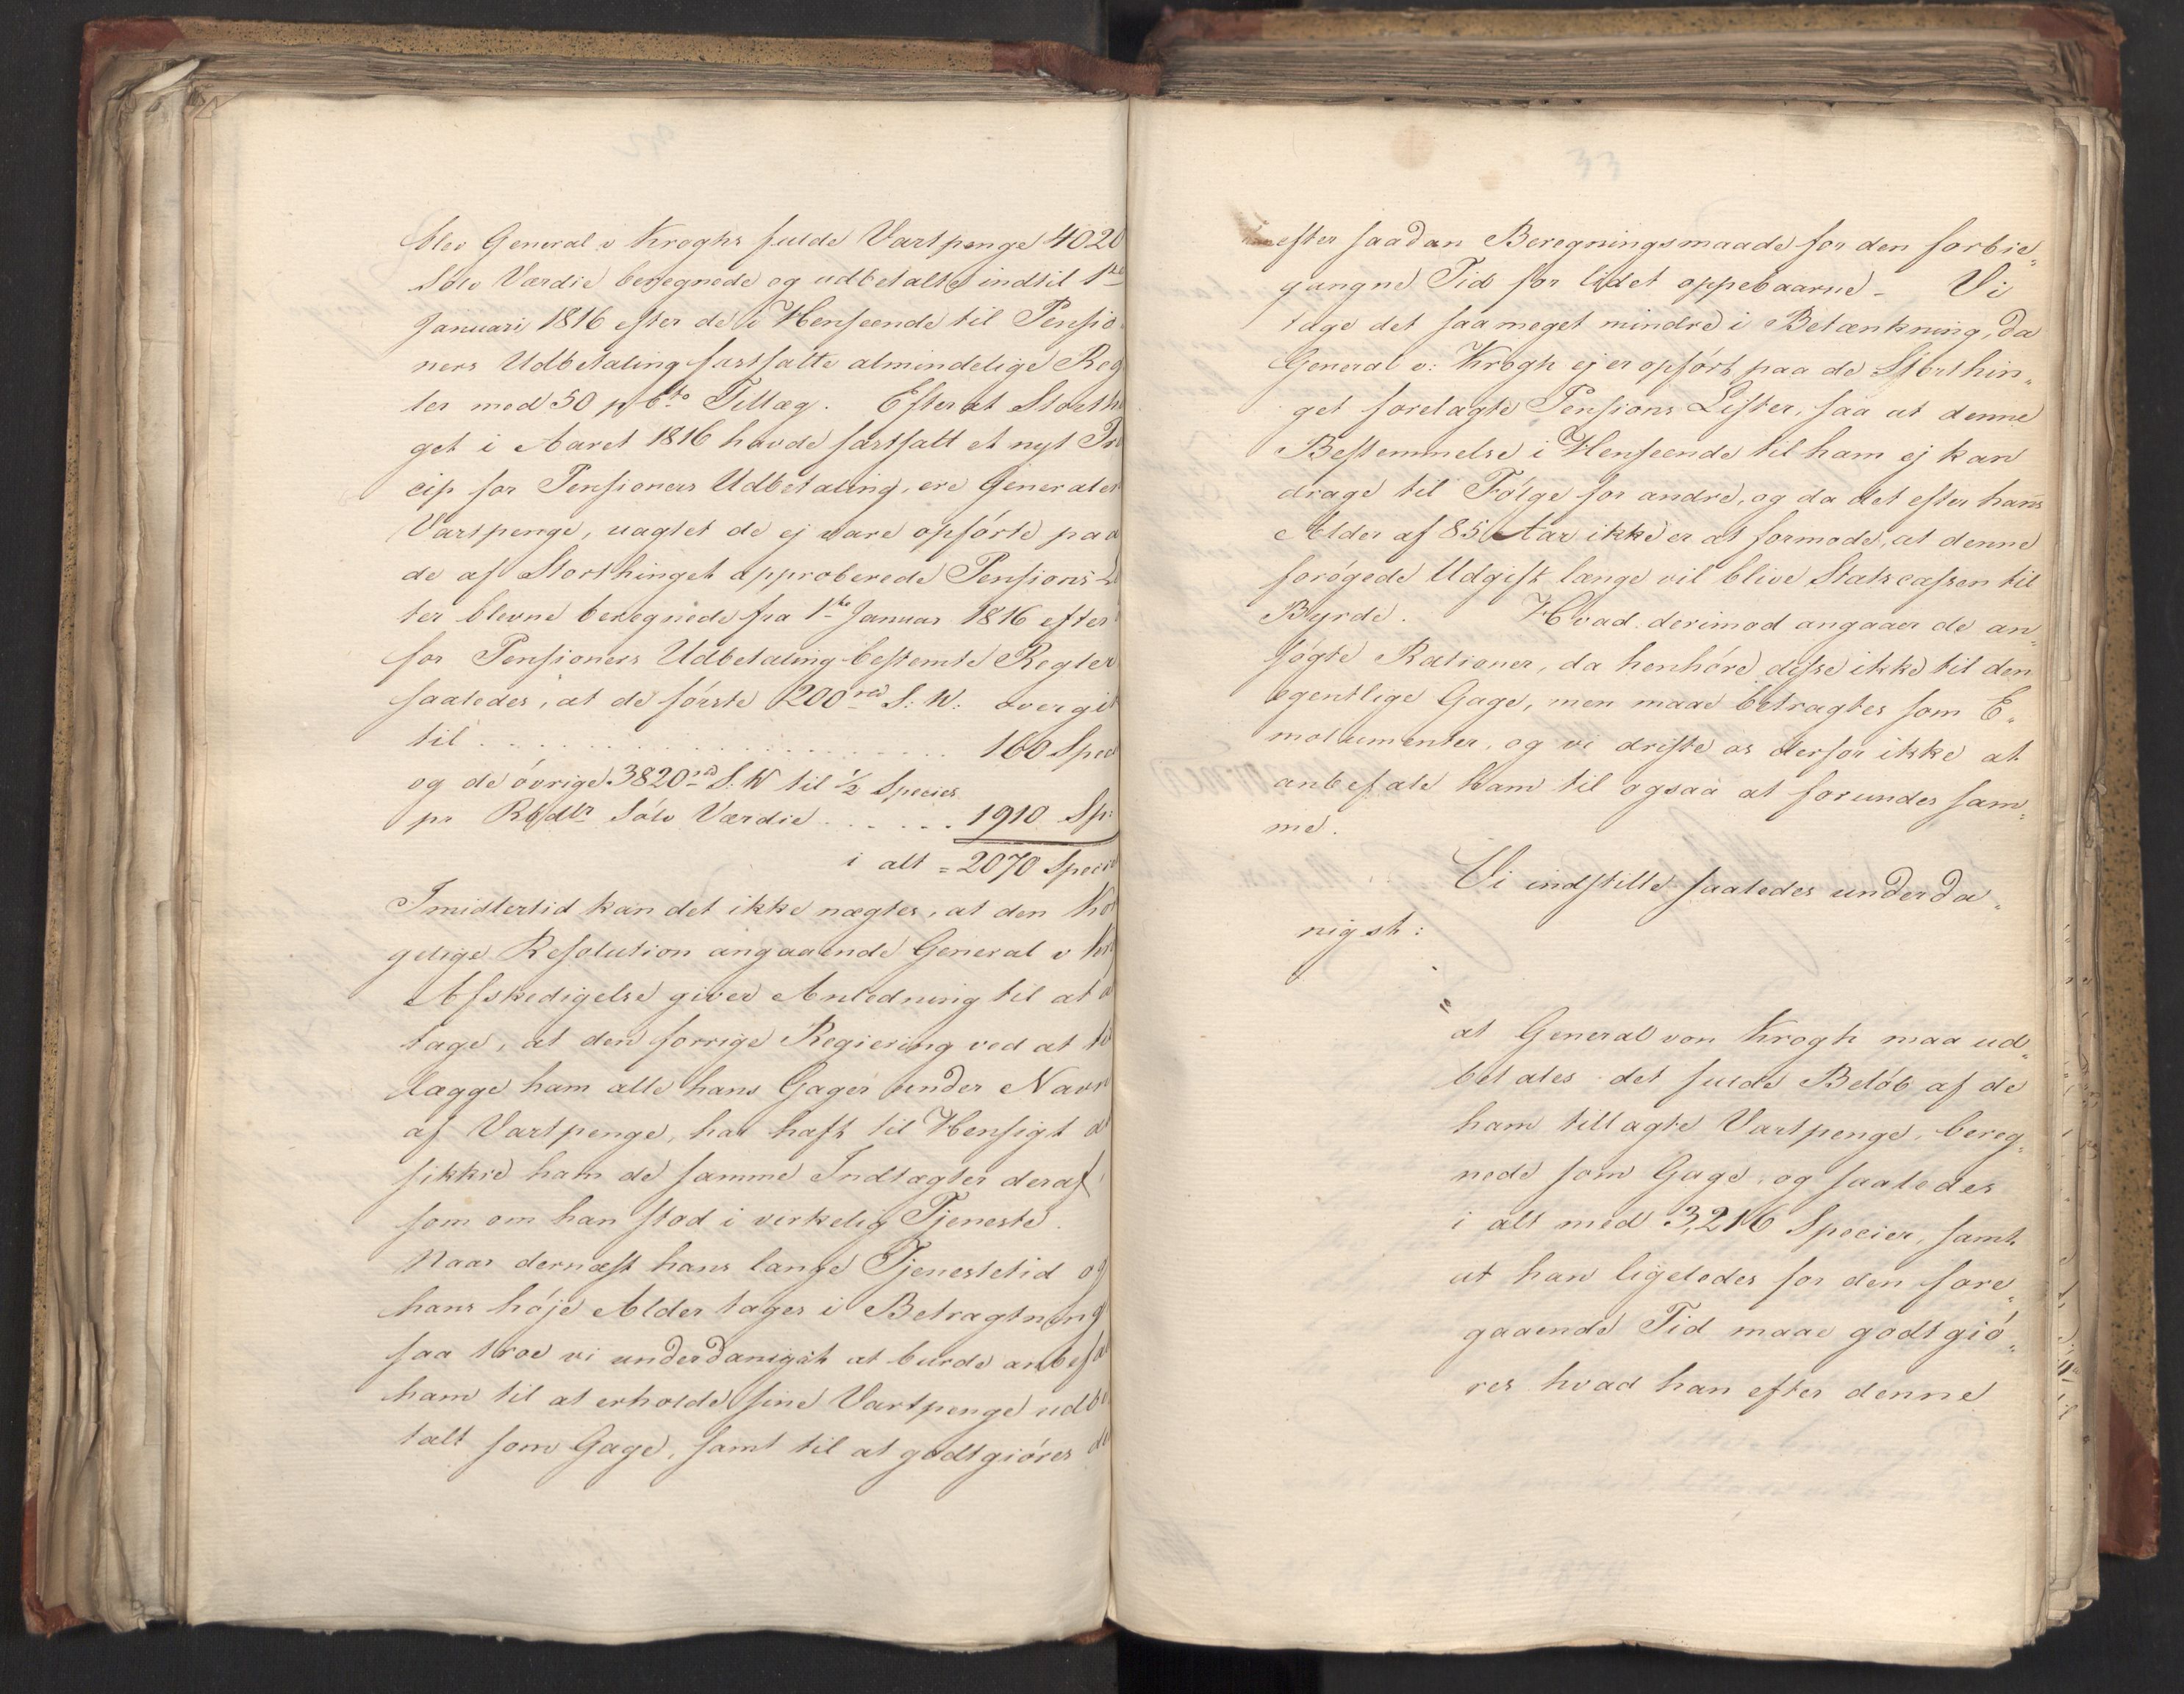 blev General v Kroghs fulde Vartpenge 4020
Sølv Værdie beregnede og udbetalte indtil 1ste
Januari 1816 efter de i Henseende til Pensio
ners Udbetaling fastsatte almindelige Reg
ler med 50 p Cto Tillæg. Efter at Storthi
get i Aaret 1816 havde fastsatt et nyt Pri
cip for Pensioners Udbetaling, ere Generalen
Vartpenge, uagtet de ej vare opførte paa
de af Storthinget approberede Pensions Li
ter blevne beregnede fra 1ste Januar 1816 efter
for Pensioners Udbetaling bestemte Regler
saaledes, at de første 200 rd S: W: overgik
til . . . . . . . . . . . . . . . . 160 Spec
og de øvrige 3820 rd S. W til ½ Species
pr Rbdlr Sølv Værdie . . . . . . 1910 Sp:
i alt = 2070 Speci
Imidlertid kan det ikke nægtes, at den Ko
gelige Resolution angaaende General v Kr
Afskedigelse giver Anledning til at a
tage, at den forrige Regiering ved at ti
lægge ham alle hans Gager under Navn
af Vartpenge, har haft til Hensigt at
sikkre ham de samme Indtægter deraf,
som om han stod i virkelig Tjeneste.
Naar dernæst hans lange Tjenestetid og
hans høje Alder tages i Betragtning
saa troe vi underdanigst at burde anbefal
ham til at erholde sine Vartpenge udbe
talt som Gage, samt til at godtgiøres de
efter saadan Beregningsmaade for den forbie„
gangne Tid for lidet oppebaarne - Vi
tage det saameget mindre i Betænkning, da
General v: Krogh ej er opført paa de Storthin„
get forelagte Pensions Lister, saa at denne
Bestemmelse i Henseende til ham ej kan
drage til Følge for andre, og da det efter hans
Alder af 85 Aar ikke er at formode, at denne
forøgede Udgift længe vil blive Statscassen til
Byrde. Hvad derimod angaaer de an„
søgte Rationer, da henhøre disse ikke til den
egentlige Gage, men maae betragtes som E„
molumenter, og vi driste os derfor ikke at
anbefale ham til ogsaa at forundes sam„
me.
Vi indstille saaledes underda„
nigst:
"
at General von Krogh maa ud„
betales det fulde Beløb af de
ham tillagte Vartpenge, bereg„
nede som Gage, og saaledes
i alt med 3,216 Species, samt
at han ligeledes for den fore„
gaaende Tid maae godtgiø„
res hvad han efter denne